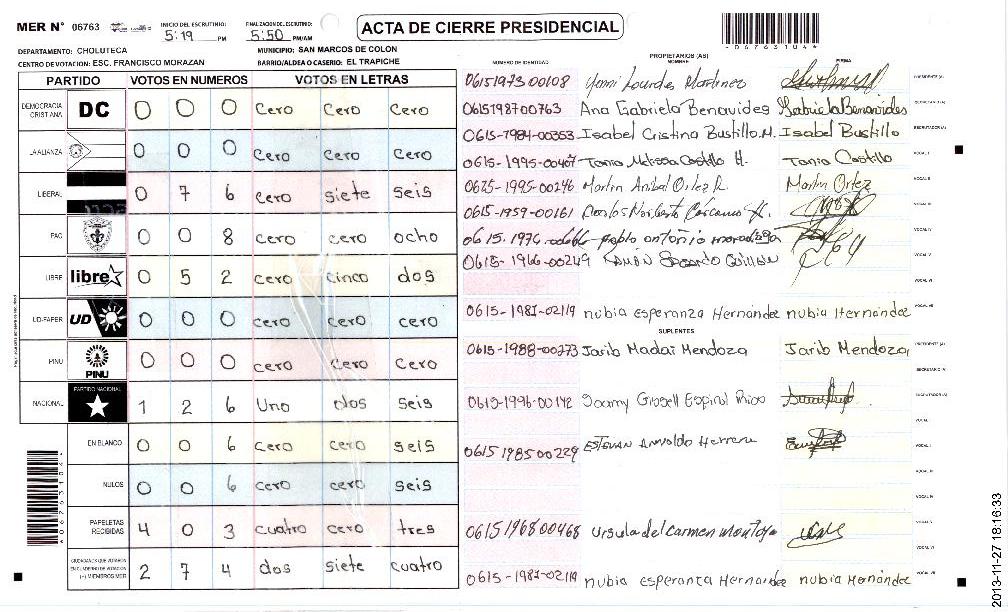 MER N° 06763
INICIO DEL ESCRUTINIO: 5:19 PM
FINALIZACION DEL ESCRUTINIO: 5:50 PM/AM
ACTA DE CIERRE PRESIDENCIAL
DEPARTAMENTO: CHOLUTECA
MUNICIPIO: SAN MARCOS DE COLON
CENTRO DE VOTACION: ESC. FRANCISCO MORAZAN
BARRIO/ALDEA O CASERIO: EL TRAPICHE
PARTIDO VOTOS EN NUMEROS VOTOS EN LETRAS
DEMOCRACIA CRISTIANA DC 0 0 0 cero cero cero
LA ALIANZA 0 0 0 cero cero cero
LIBERAL 0 7 6 cero siete seis
PAC 0 0 8 cero cero ocho
LIBRE libre 0 5 2 cero cinco dos
UD-FAPER UD 0 0 0 cero cero cero
PINU PINU 0 0 0 cero cero cero
NACIONAL PARTIDO NACIONAL 1 2 6 Uno dos seis
EN BLANCO 0 0 6 cero cero seis
NULOS 0 0 6 cero cero seis
PAPELETAS RECIBIDAS 4 0 3 cuatro cero tres
CIUDADANOS QUE VOTARON EN CUADERNO DE VOTACION (+) MIEMBROS MER 2 7 4 dos siete cuatro
PROPIETARIOS (AS)
NUMERO DE IDENTIDAD NOMBRE FIRMA
0615197300108 Lourdes Martinez PRESIDENTE (A)
0615198700763 Ana Gabriela Benavides Gabriela Benavides SECRETARIO (A)
0615-1984-00353 Isabel Cristina Bustillo M. Isabel Bustillo ESCRUTADOR (A)
0615-1995-00407 Tania Melissa Castillo H. Tania Castillo VOCAL I
0615-1995-00246 Marlin Anibal Ortez R. Marlin Ortez VOCAL II
0615-1959-00161 Carlos Norberto VOCAL III
0615.1976 pablo antonio VOCAL IV
0615-1966-00249 VOCAL V
VOCAL VI
0615-1981-02119 nubia esperanza Hernandez nubia Hernandez VOCAL VII
SUPLENTES
0615-1988-00273 Jarib Madai Mendoza Jarib Mendoza PRESIDENTE (A)
SECRETARIO (A)
0615-1996-00142 Gissell Espinal ESCRUTADOR (A)
VOCAL I
0615198500229 ESTEVAN Arnoldo Herrera
VOCAL III
VOCAL IV
0615196800468 Ursula del carmen montoya VOCAL V
VOCAL VI
0615-1981-02119 nubia esperanza Hernandez nubia Hernandez VOCAL VII
2013-11-27 18:16:33